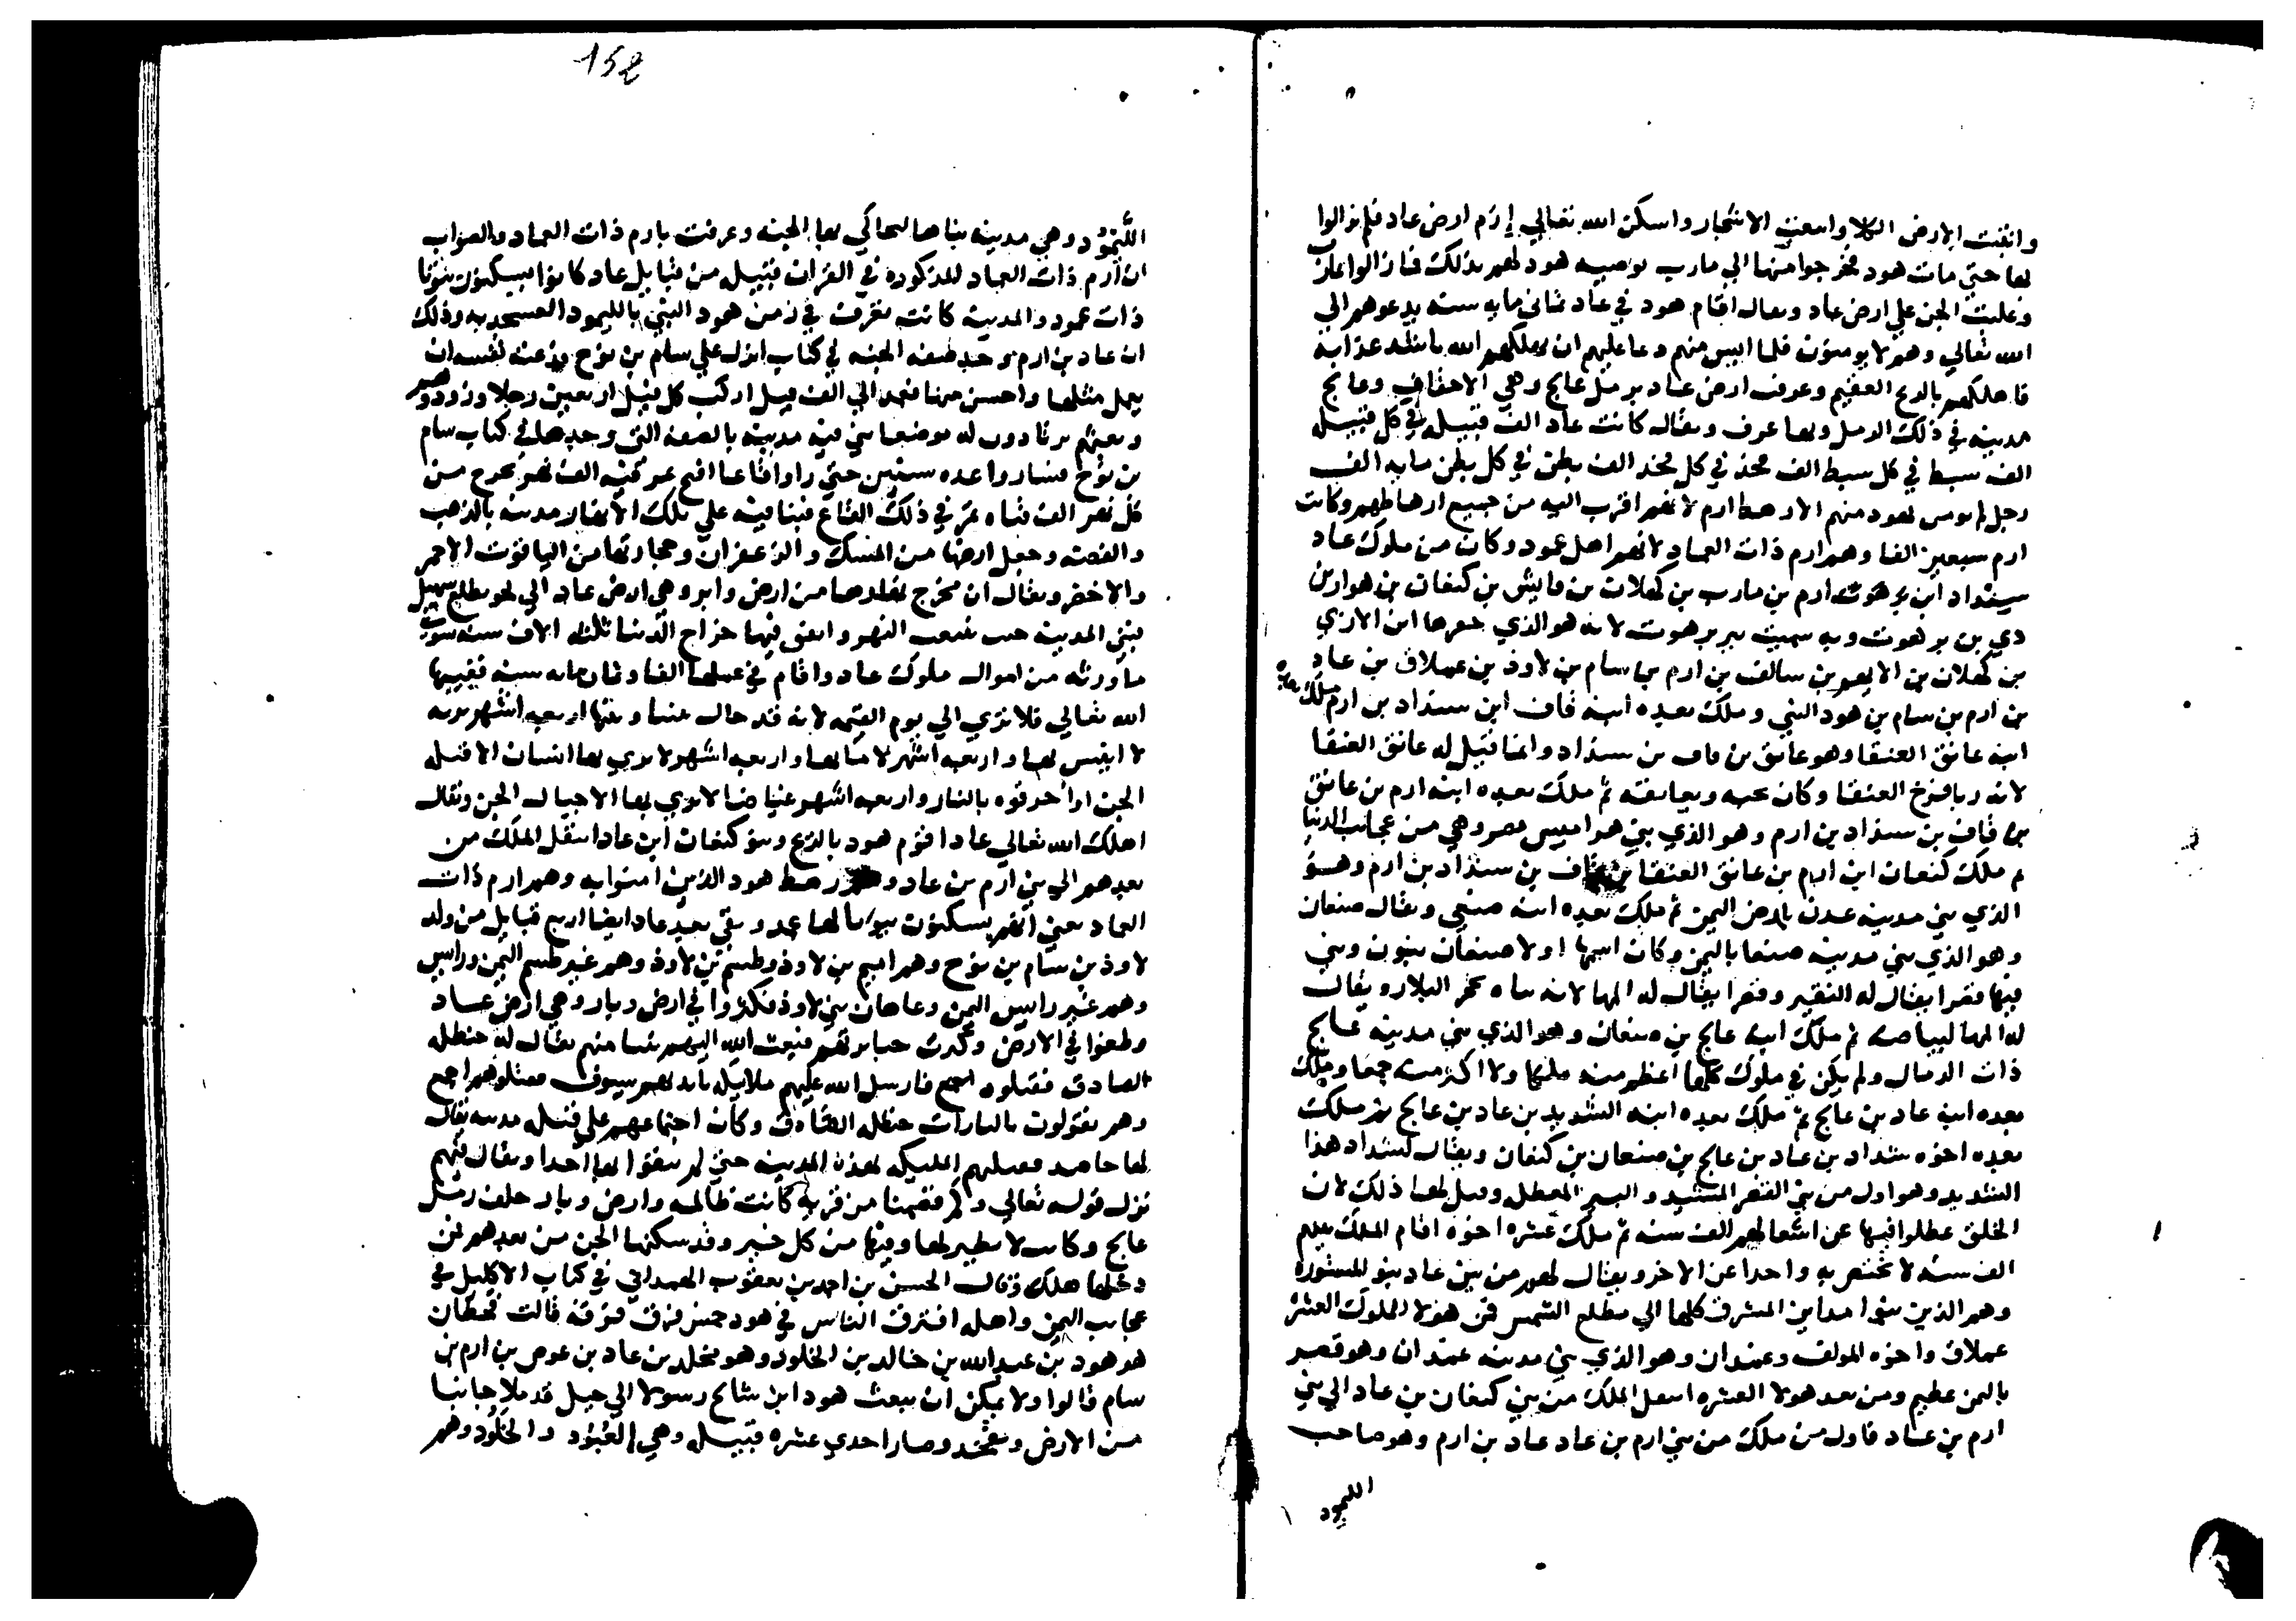 وانبتت الارض الكلا وابنعت الاشجار واسكن الله تعالي إرَم ارض عاد فلم يزالوا
بها حتي مات هود فخرجوا منها الي مارب بوصيه هود لهم بذلك فنازلوا مارب
وغلبت الجن علي ارض عاد ويقال اقام هود في عاد ثماني مايه سنه يدعوهم الي
الله تعالي وهم لا يومنون فلما ايس منهم دعا عليهم ان يهلكهم الله باشد عذابه
فاهلكهم بالريح العقيم وعرفت ارض عاد برمل عابج وهي الاحقاف وعابج
مدينه في ذلك الرمل وبها عرف ويقال كانت عاد الف قبيله في كل قبيله
الف سبط في كل سبط الف فخذ في كل فخذ الف بطن في كل بطن مايه الف
رجل لم يومن بهود منهم الا رهط ارم لانهم اقرب اليه من جميع ارهاطهم وكانت
ارم سبعين الفا وهم ارم ذات العماد لانهم اهل عمود وكان من ملوك عاد
سنداد ابن برهوت ارم بن مارب بن كهلان بن فايش بن كنعان بن هوار بن
دي بن برهوت وبه سميت بير برهوت لانه هو الذي حفرها ابن الازي
بن كهلان بن الايعر بن سالف بن ارم بن سام بن لاوذ بن عملاق بن عاد
بن ارم بن سام بن هود النبي وملك بعده ابنه قاف ابن سنداد بن ارم ملك بعده
ابنه عانق العنقا وهو عانق بن قاف بن سنداد وانما قيل له عانق العنقا
لانه ربا فرخ العنقا وكان يحبه ويعانقه ثم ملك بعده ابنه ارم بن عانق
بن قاف بن سنداد بن ارم وهو الذي بني هواميس مصر وهي من عجايب الدنيا
ثم ملك كنعان ابن ارم بن عانق العنقا بن قاف بن سنداد بن ارم وهو
الذي بني مدينه عدن بارض اليمن ثم ملك بعده ابنه صنعي ويقال صنعان
وهو الذي بني مدينه صنعا باليمن وكان اسمها اولا صنعان بنون وبني
فيها قصرا يقال له النقير وقصرا يقال له المها لانه بناه بحجر البلار ويقال
له المها لبياضه ثم ملك ابنه عابج بن صنعان وهو الذي بني مدينه عابج
ذات الرمال ولم يكن في ملوك كلها اعظم منه ملكا ولا اكثر منه جمعا وملك
بعده ابنه عاد بن عابج ثم ملك بعده ابنه الشديد بن عاد بن عابج ثم ملك
بعده اخوه شداد بن عاد بن عابج بن صنعان بن كنعان ويقال لشداد هذا
الشديد وهو اول من بني القصر المشيد والبير المعطله وقيل لها ذلك لان
الخلق عطلوا فيها عن اشعالهم الف سنه ثم ملك عشره اخوه اقام الملك بينهم
الف سنه لا يختص به واحدا عن الاخر ويقال لهم من بني عاد بنو المسوره
وهم الذين بنوا مداين المشرق كلها الي مطلع الشمس فمن هولا الملوك العشره
عملاق واخوه المولف وغمدان وهو الذي بني مدينه غمدان وهو قصر
باليمن عظيم ومن بعد هولا العشره انتقل الملك من بني كنعان بن عاد الي بني
ارم بن عاد فاول من ملك من بني ارم بن عاد عاد بن ارم وهو صاحب
الليمود
152
اللَّيمُوُد وهي مدينه بناها ليحاكي بها الجنه وعرفت بارم ذات العماد والصواب
ان ارم ذات العماد المذكوره في القران قبيله من قبايل عاد كانوا يسكنون بيوتا
ذات عمود والمدينه كانت تعرف في زمن هود النبي بالليمود العسجديه وذلك
ان عاد بن ارم وجد صفه الجنه في كتاب انزل علي سام بن نوح وزعت نفسه ان
يعمل مثلها واحسن منها فعمد الي الف فيل اركب كل فيل اربعين رجلا وزودوهم
وبعثهم يرتادون له موضعا يبني فيه مدينه بالصفه التي وجدها في كتاب سام
بن نوح فساروا عده سنين حتي راوا قاعا افيح الف نهر يخرج من
كل نهر الف قناه تمر في ذلك القاع فبنا فيه علي تلك الانهار مدينه بالذهب
والفضه وجعل ارضها من المسك والزعفران وحجارتها من الياقوت الاحمر
والاخضر ويقال ان مخرج من ارض وابر وهي ارض عاد الي نحو مطلع سهيل
فبني المدينه حيث شعب النهر وانفق فيها خراج الدنيا ثلثه الاف سنه سوي
ما ورثه من اموال ملوك عاد واقام في عملها الف وثمان مايه سنه فغيبها
الله تعالي فلا تري الي يوم القيمه لانه قد حال عنها وبينها اربعه اشهر بريه
لا انيس بها واربعه اشهر لا ما بها واربعه اشهر لا يري بها انسان الا قتله
الجن او احرقوه بالنار واربعه اشهر غياضا لا يري بها الا خيال الجن ويقال
اهلك الله تعالي عادا قوم هود بالريح وبنو كنعان ابن عاد انتقل الملك من
بعدهم الي بني ارم بن عاد وهم رهط هود الذين امنوا به وهم ارم ذات
العماد يعني انهم يسكنون بيوتا لها عمد وبقي بعد عاد ايضا اربع قبايل من ولد
لاوذ بن سام بن نوح وهم اميم بن لاوذ وطسم بن لاوذ وهم غير طسم اليمن وراس
وهم غير راس اليمن وعاهان بني لاوذ فكثروا في ارض وبار وهي ارض عاد
وطغوا في الارض وكثرت جبابرتهم فبعث الله اليهم نبيا منهم يقال له حنظله
الصادق فقتلوه اجمع فارسل الله عليهم ملايكه بايديهم سيوف فقتلوهم اجمع
وهم يقولون يالثارات حنظله الصادق وكان اجتماعهم علي قتله مدينه يقال
لها حاصد فقتلهم المليكه بهذه المدينه حتي لم يبقوا بها احدا ويقال فيهم
نزل قوله تعالي وكم قصمنا من قريه كانت ظالمه وارض وبار خلف رمل
عابج وكانت لا نظير لها وفيها من كل خير وقد سكنها الجن من بعدهم فمن
دخلها هلك وقال الحسن بن احمد بن يعقوب الهمداني في كتاب الاكليل في
عجايب اليمن واهله افترقت الناس في هود خمس فرق فرقه قالت قحطان
هو هود بن عبدالله بن خالد بن الخلود وهو مخلد بن عاد بن عوص بن ارم بن
سام قالوا ولا يمكن ان يبعث هود ابن شالخ رسولا الي جيل قد ملا جانبا
من الارض وتفخذ وصار احدي عشره قبيله وهي العُبُود والخَلُود وهم